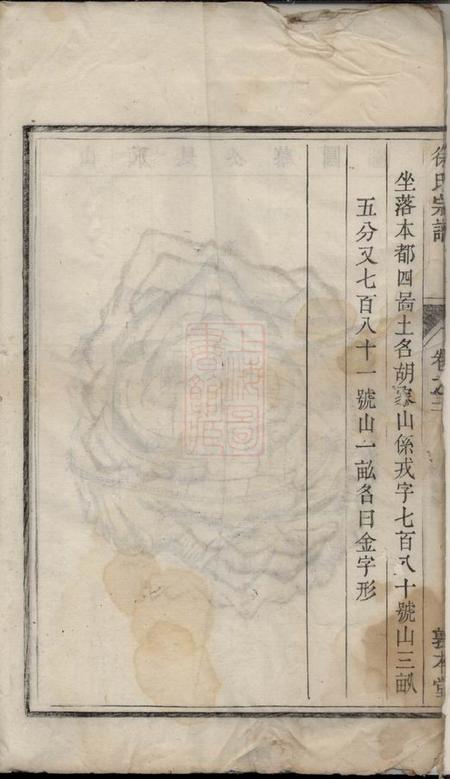 徐氏宗譜
卷之二
敦本堂
坐落本都四啚土名胡家山係戎字七百八十號山三畝
五分又七百八十一號山一畝各曰金字形
上海圖書館藏